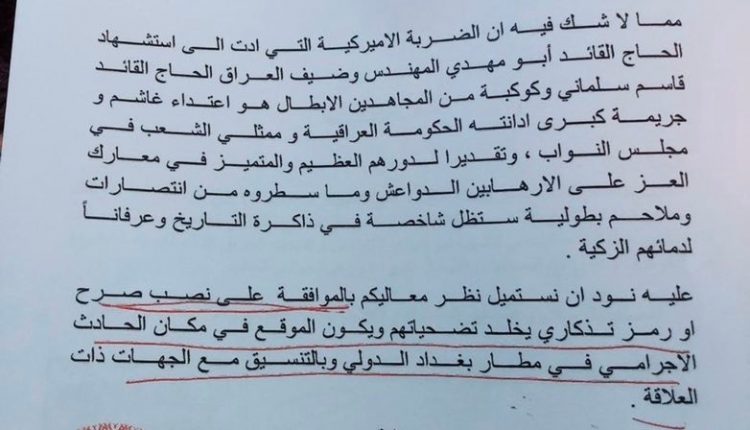 مما لا شك فيه ان الضربة الاميركية التي ادت الى استشهاد
الحاج القائد أبو مهدي المهندس وضيف العراق الحاج القائد
قاسم سلماني وكوكبة من المجاهدين الابطال هو اعتداء غاشم و
جريمة كبرى ادانته الحكومة العراقية و ممثلي الشعب في
مجلس النواب ، وتقديرا لدورهم العظيم والمتميز في معارك
العز على الارهابين الدواعش وما سطروه من انتصارات
وملاحم بطولية ستظل شاخصة في ذاكرة التاريخ وعرفاناً
لدمائهم الزكية .
عليه نود ان نستميل نظر معاليكم بالموافقة على نصب صرح
او رمز تذكاري يخلد تضحياتهم ويكون الموقع في مكان الحادث
الاجرامي في مطار بغداد الدولي وبالتنسيق مع الجهات ذات
العلاقة .